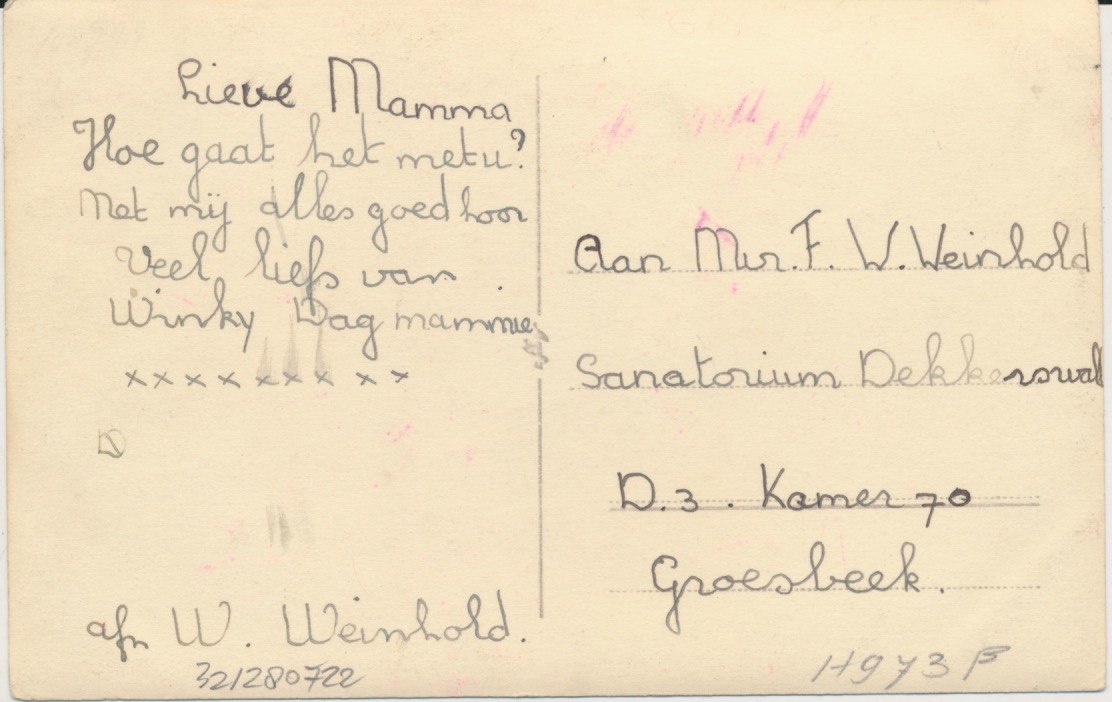 Lieve Mamma
Hoe gaat het met u?
Met mij alles goed hoor
Veel liefs van
Winky Dag mammie
x x x x x x x x x
afz W. Weinhold.
321280722
Aan Mevr. F. W. Weinhold
Sanatorium Dekkerswal
D. 3. Kamer 70
Groesbeek.